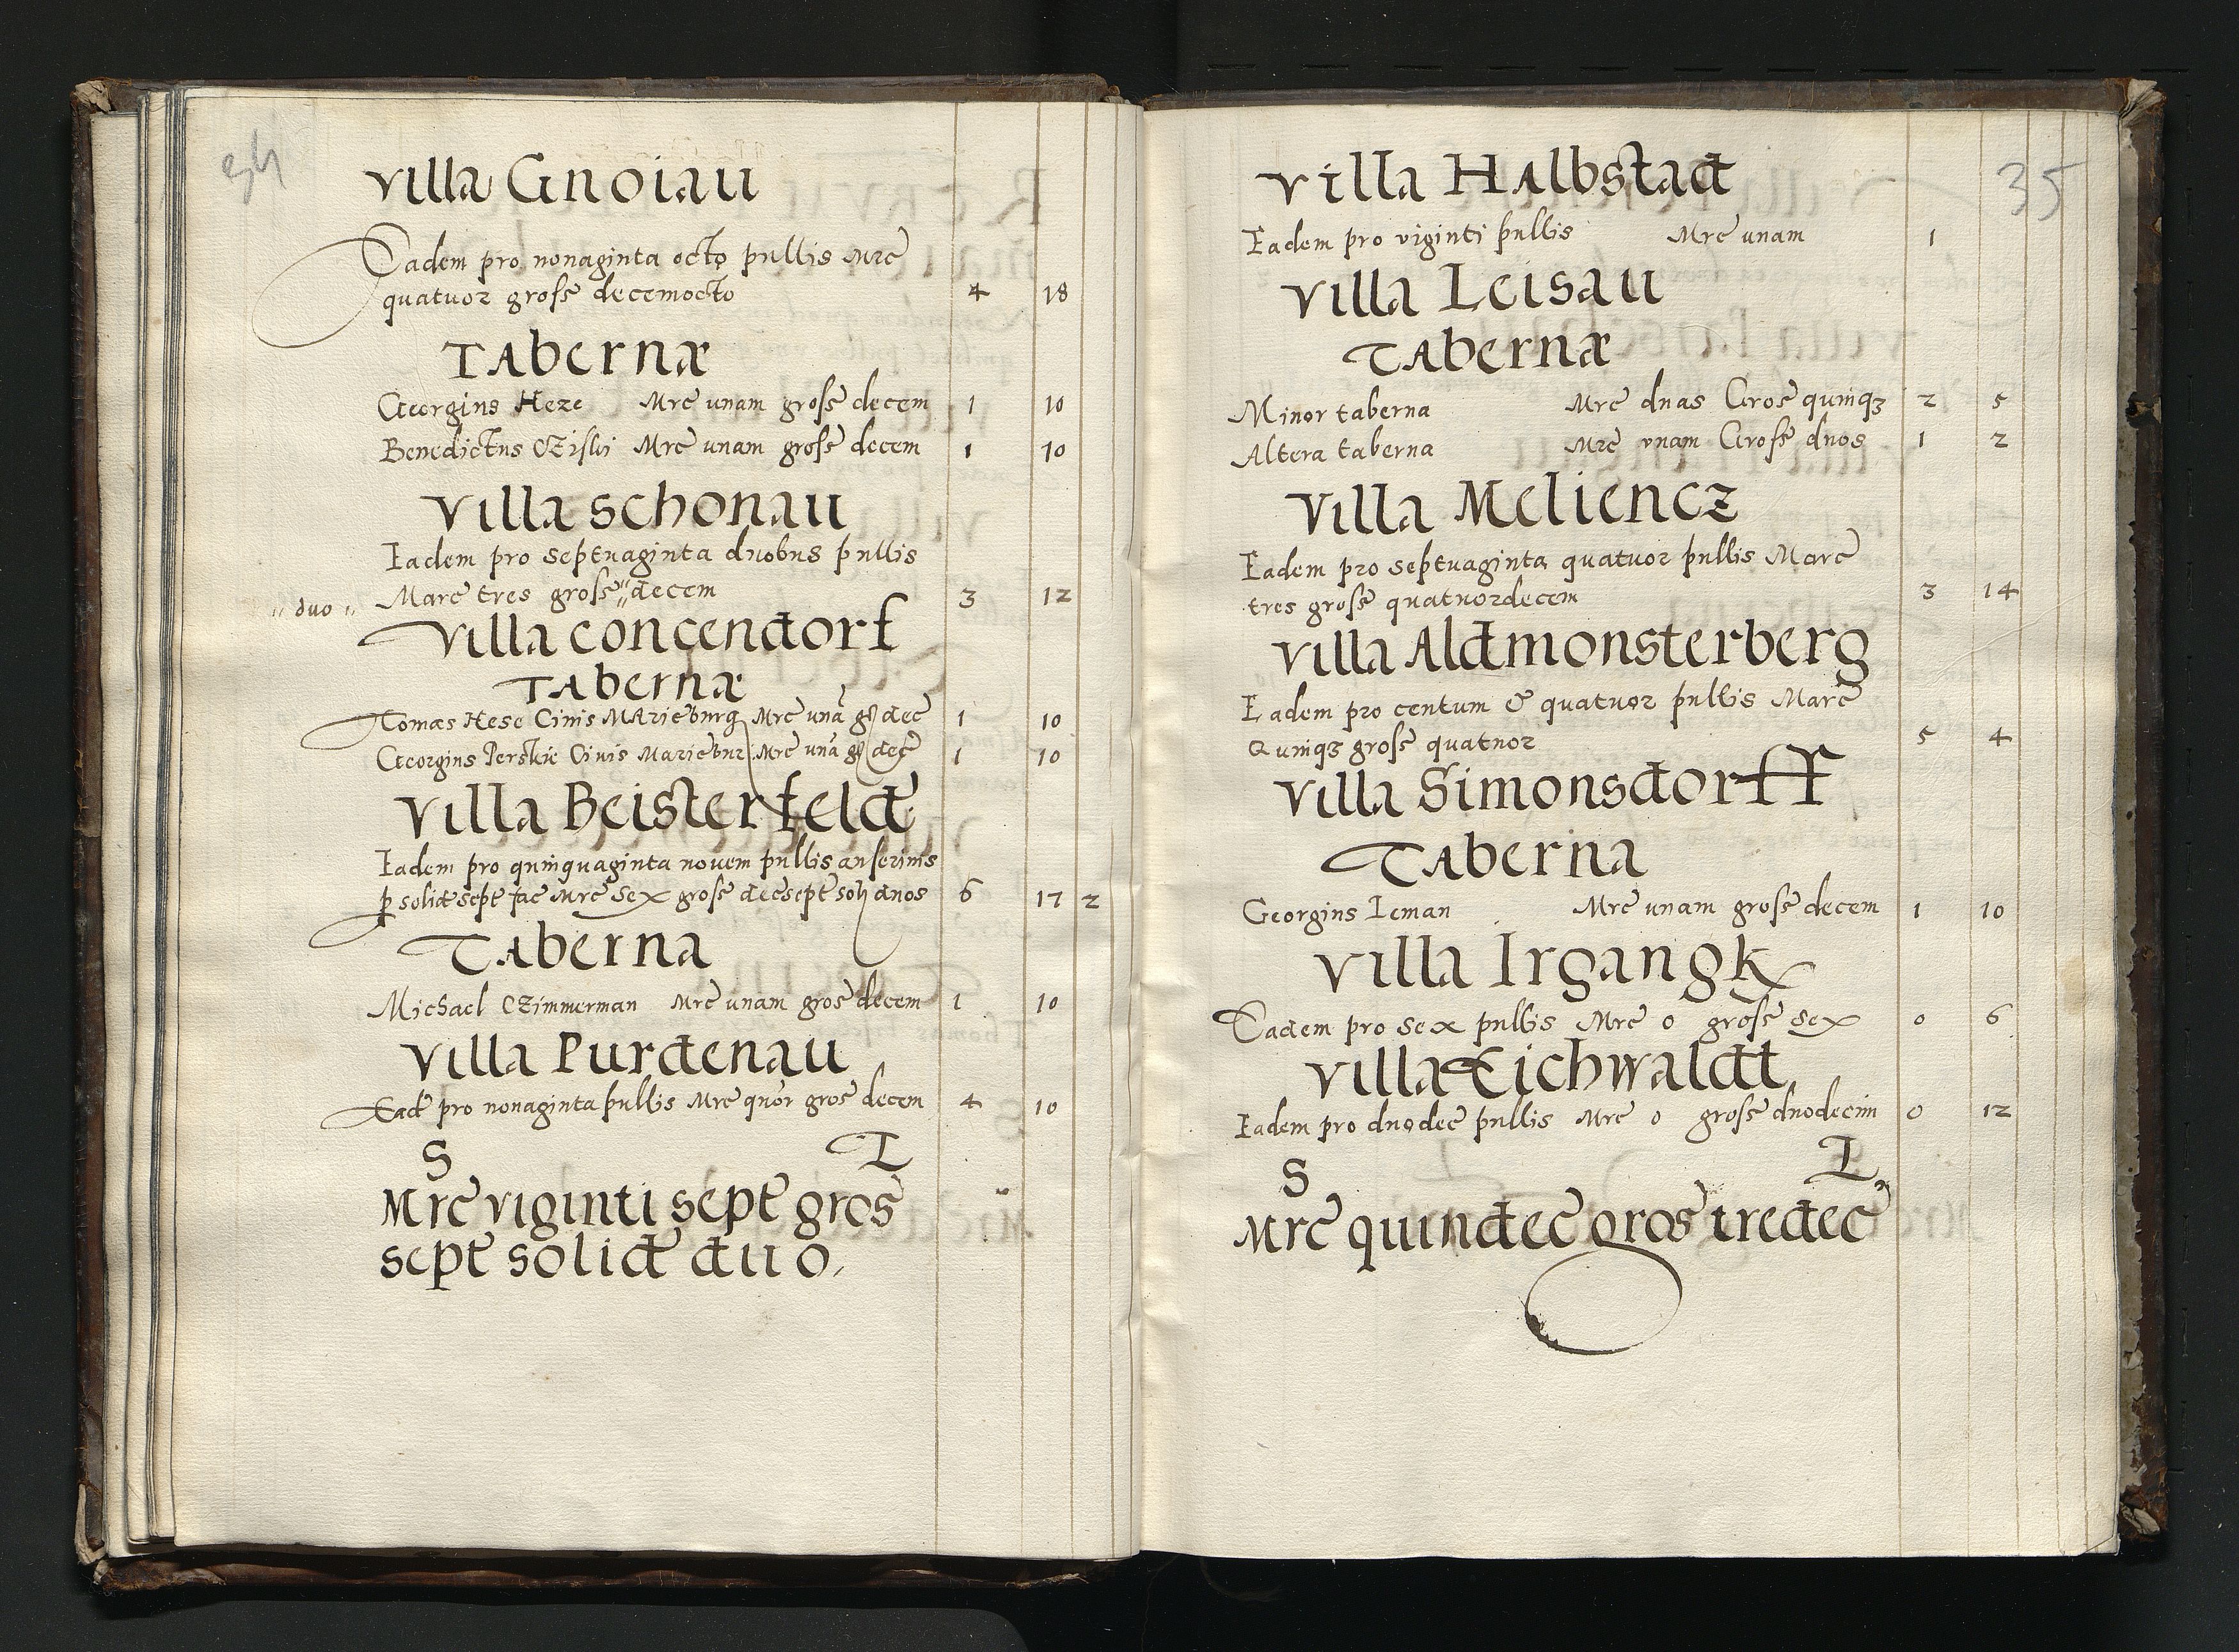 34
Villa Gnoiau
Eadem pro nonaginta octo pullis Mrc̄
quatuor gross̄ decemocto 4 18
Tabernæ
Georgius Heze Mrc̄ unam gross̄ decem 1 10
Benedictus CZiski Mrc̄ unam gross̄ decem 1 10
Villa Schonau
Eadem pro septuaginta duobus pullis
"duo" Marc̄ tres gross̄ " decem 3 12
Villa Concendorf
Tabernæ
Tomas Hese Civis Marieburg Mrc̄ unā ḡ dec̄ 1 10
Georgius Perskie Civis Mariebur Mrc̄ unā ḡ dec̄ 1 10
Villa Beisterfeld
Eadem pro quinquaginta novem pullis anserinis
p solid sept fac̄ Mrc̄ Sex gross̄ decsept̄ sol duos 6 17 2
Taberna
Michael CZimmerman Mrc̄ unam gros̄ decem 1 10
Villa Purdenau
Ead̄ pro nonaginta pullis Mrc̄ quōr gros̄ decem 4 10
S L
Mrc̄ viginti sept̄ gros̄
sept̄ solid̄ duo,
35
Villa Halbstad
Eadem pro viginti pullis Mrc̄ unam 1
Villa Leisau
Tabernæ
Minor taberna Mrc̄ duas Gros̄ quinqꝫ 2 5
Altera taberna Mrc̄ vnam Gross̄ duos 1 2
Villa Meliencz
Eadem pro septuaginta quatuor pullis Marc̄
tres gross̄ quatuordecem 3 14
Villa Aldmonsterberg
Eadem pro centum & quatuor pullis Marc̄
Quinqꝫ gross̄ quatuor 5 4
Villa Simonsdorff
Taberna
Georgius Ieman Mrc̄ unam gross̄ decem 1 10
Villa Irgangk
Eadem pro sex pullis Mrc̄ 0 gross̄ sex 0 6
Villa Eichwaldt
Eadem pro duodec̄ pullis Mrc̄ 0 gross̄ duodecim 0 12
S L
Mrc̄ quindec̄ gros̄ tredec̄